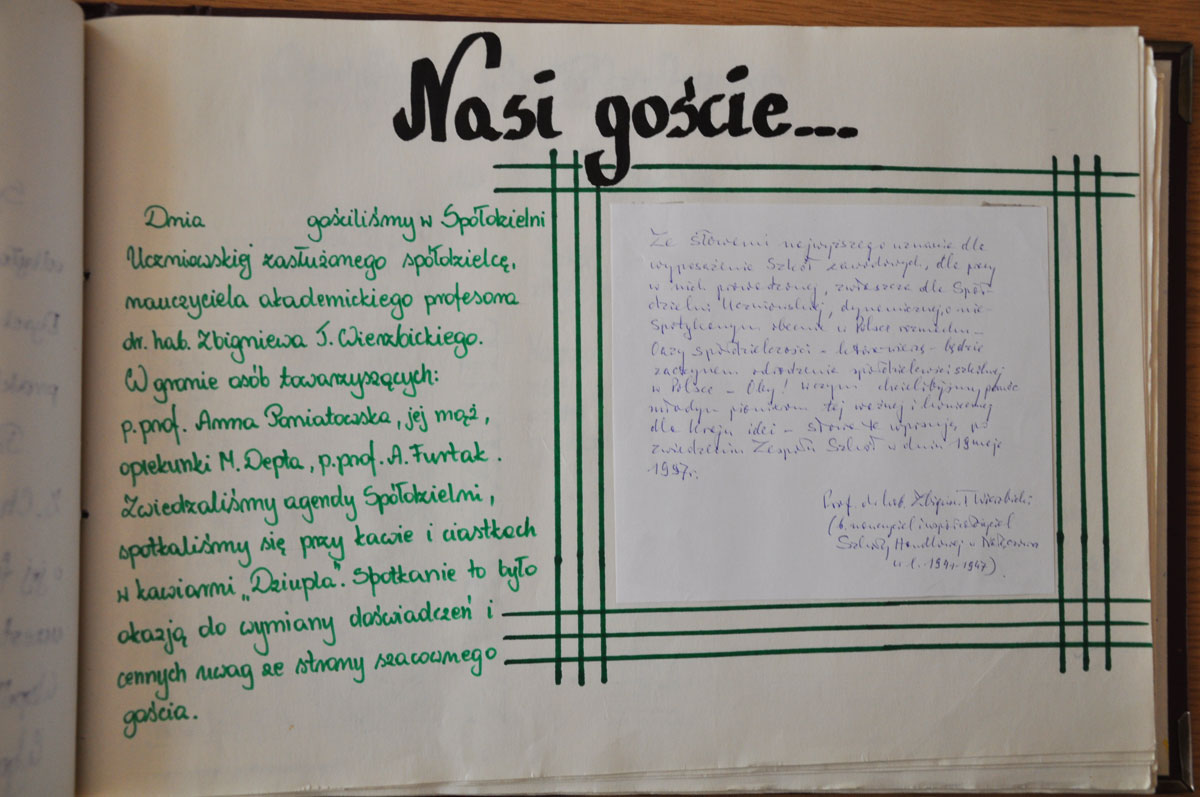 Nasi goście...
Dnia gościliśmy w Spółdzielni
Uczniowskiej zasłużonego spółdzielcę,
nauczyciela akademickiego profesora
dr. hab. Zbigniewa T. Wierzbickiego.
W gronie osób towarzyszących:
p. prof. Anna Poniatowska, jej mąż,
opiekunki M. Depta, p. prof. A. Furtak.
Zwiedzaliśmy agendy Spółdzielni,
spotkaliśmy się przy kawie i ciastkach
w kawiarni „Dziupla”. Spotkanie to było
okazją do wymiany doświadczeń i
cennych uwag ze strony szacownego
gościa.
Ze słowami najwyższego uznania dla
wyposażenia Szkół zawodowych, dla pracy
w nich prowadzonej, zwłaszcza dla Spół-
dzielni Uczniowskiej, dynamicznej, o nie-
spotykanym obecnie w Polsce rozmachu –
Oazy spółdzielczości – która wierzę – będzie
zaczynem odrodzenia spółdzielczości szkolnej
w Polsce – Oby!
młodym pionierom tej ważnej i koniecznej
dla kraju idei – słowa te wpisuję po
zwiedzeniu Zespołu Szkół w dniu 19 maja
1997 r.
Prof. dr hab. Zbigniew T. Wierzbicki
(b. nauczyciel i współzałożyciel
Szkoły Handlowej w Nałęczowie
w l. 1941-1947).